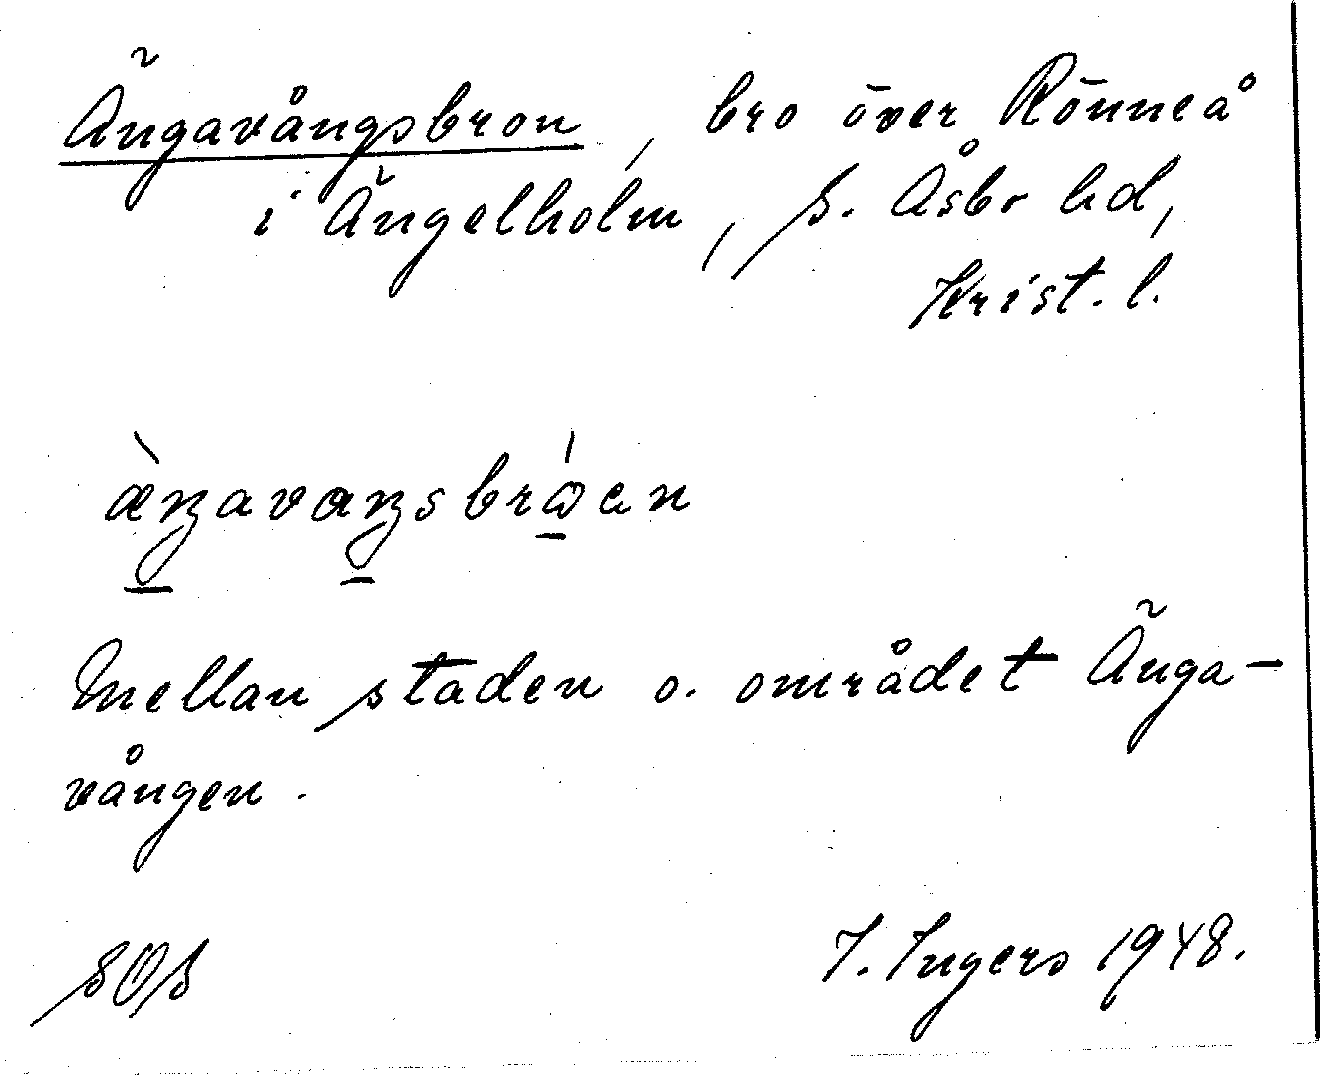 Ängavångsbron, bro över Rönneå
i Ängelholm, S. Åsbo hd,
Krist. l.
æ̀ŋavaŋsbró̱en
Mellan staden o. området Änga-
vången.
SOS
I. Ingers 1948.